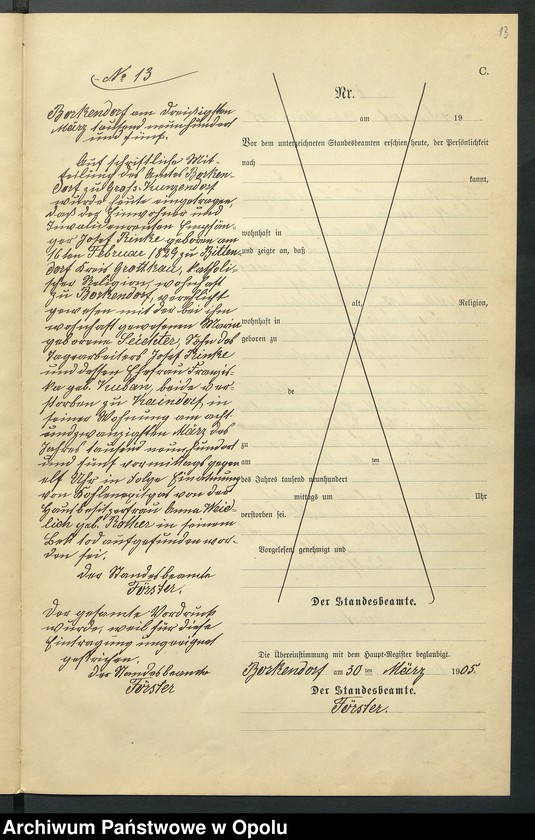 13
№ 13
C.
Borkendorf am dreißigsten
März tausend neunhundert
und fünf.
Auf schriftliche Mit-
teilung des Amtes Borken-
dorf zu Groß-Kunzendorf
wurde heute eingetragen,
daß der Einwohner und
Invalidenrenten Empfän-
ger Josef Rinke geboren am
16ten Februar 1829 zu
dorf Kreis Grottkau, katholi-
scher Religion, wohnhaft
zu Borkendorf, verehelicht
gewesen mit der bei ihm
wohnhaft gewesenen Maria
geborene Leichter, Sohn des
Tagearbeiters Josef Rinke
und dessen Ehefrau Franzis-
ka geb. beide ver-
storben zu Kaindorf, in
seiner Wohnung am acht
undzwanzigsten März des
Jahres tausend neunhundert
und fünf vormittags gegen
elf Uhr in Folge Einatmung
von Kohlenoxydgas von der
Hausbesitzerfrau Anna
lich geb. Rother in seinem
Bett tod aufgefunden wor-
den sei.
Der Standesbeamte
Förster.
Der gesamte Vordruck
wurde, weil für diese
Eintragung ungeeignet
gestrichen.
Der Standesbeamte
Förster
Nr.
am 19
Vor dem unterzeichneten Standesbeamten erschien heute, der Persönlichkeit
nach
kannt,
wohnhaft in
und zeigte an, daß
alt, Religion,
wohnhaft in
geboren zu
de
zu
am ten
des Jahres tausend neunhundert
mittags um Uhr
verstorben sei.
Vorgelesen, genehmigt und
Der Standesbeamte.
Die Übereinstimmung mit dem Haupt-Register beglaubigt.
Borkendorf am 30 ten März 1905.
Der Standesbeamte.
Förster.
Archiwum Państwowe w Opolu